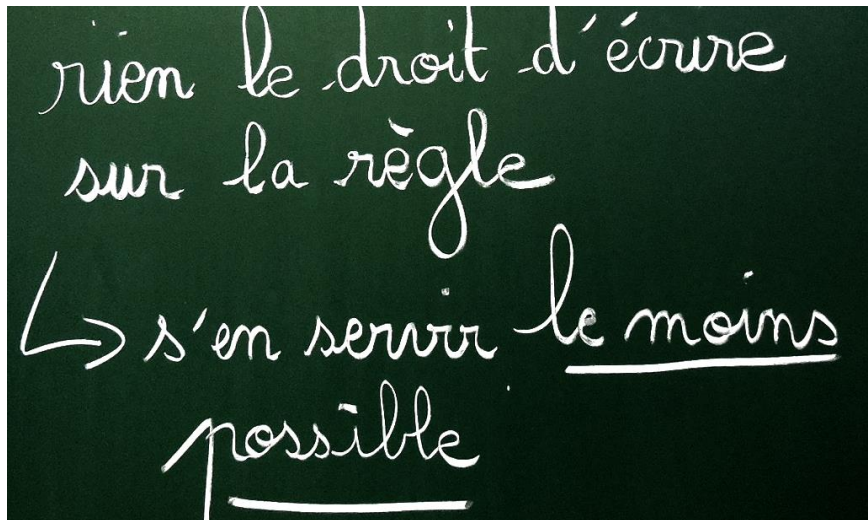 rien le droit d'écrire
sur la règle
↳ s'en servir le moins
possible